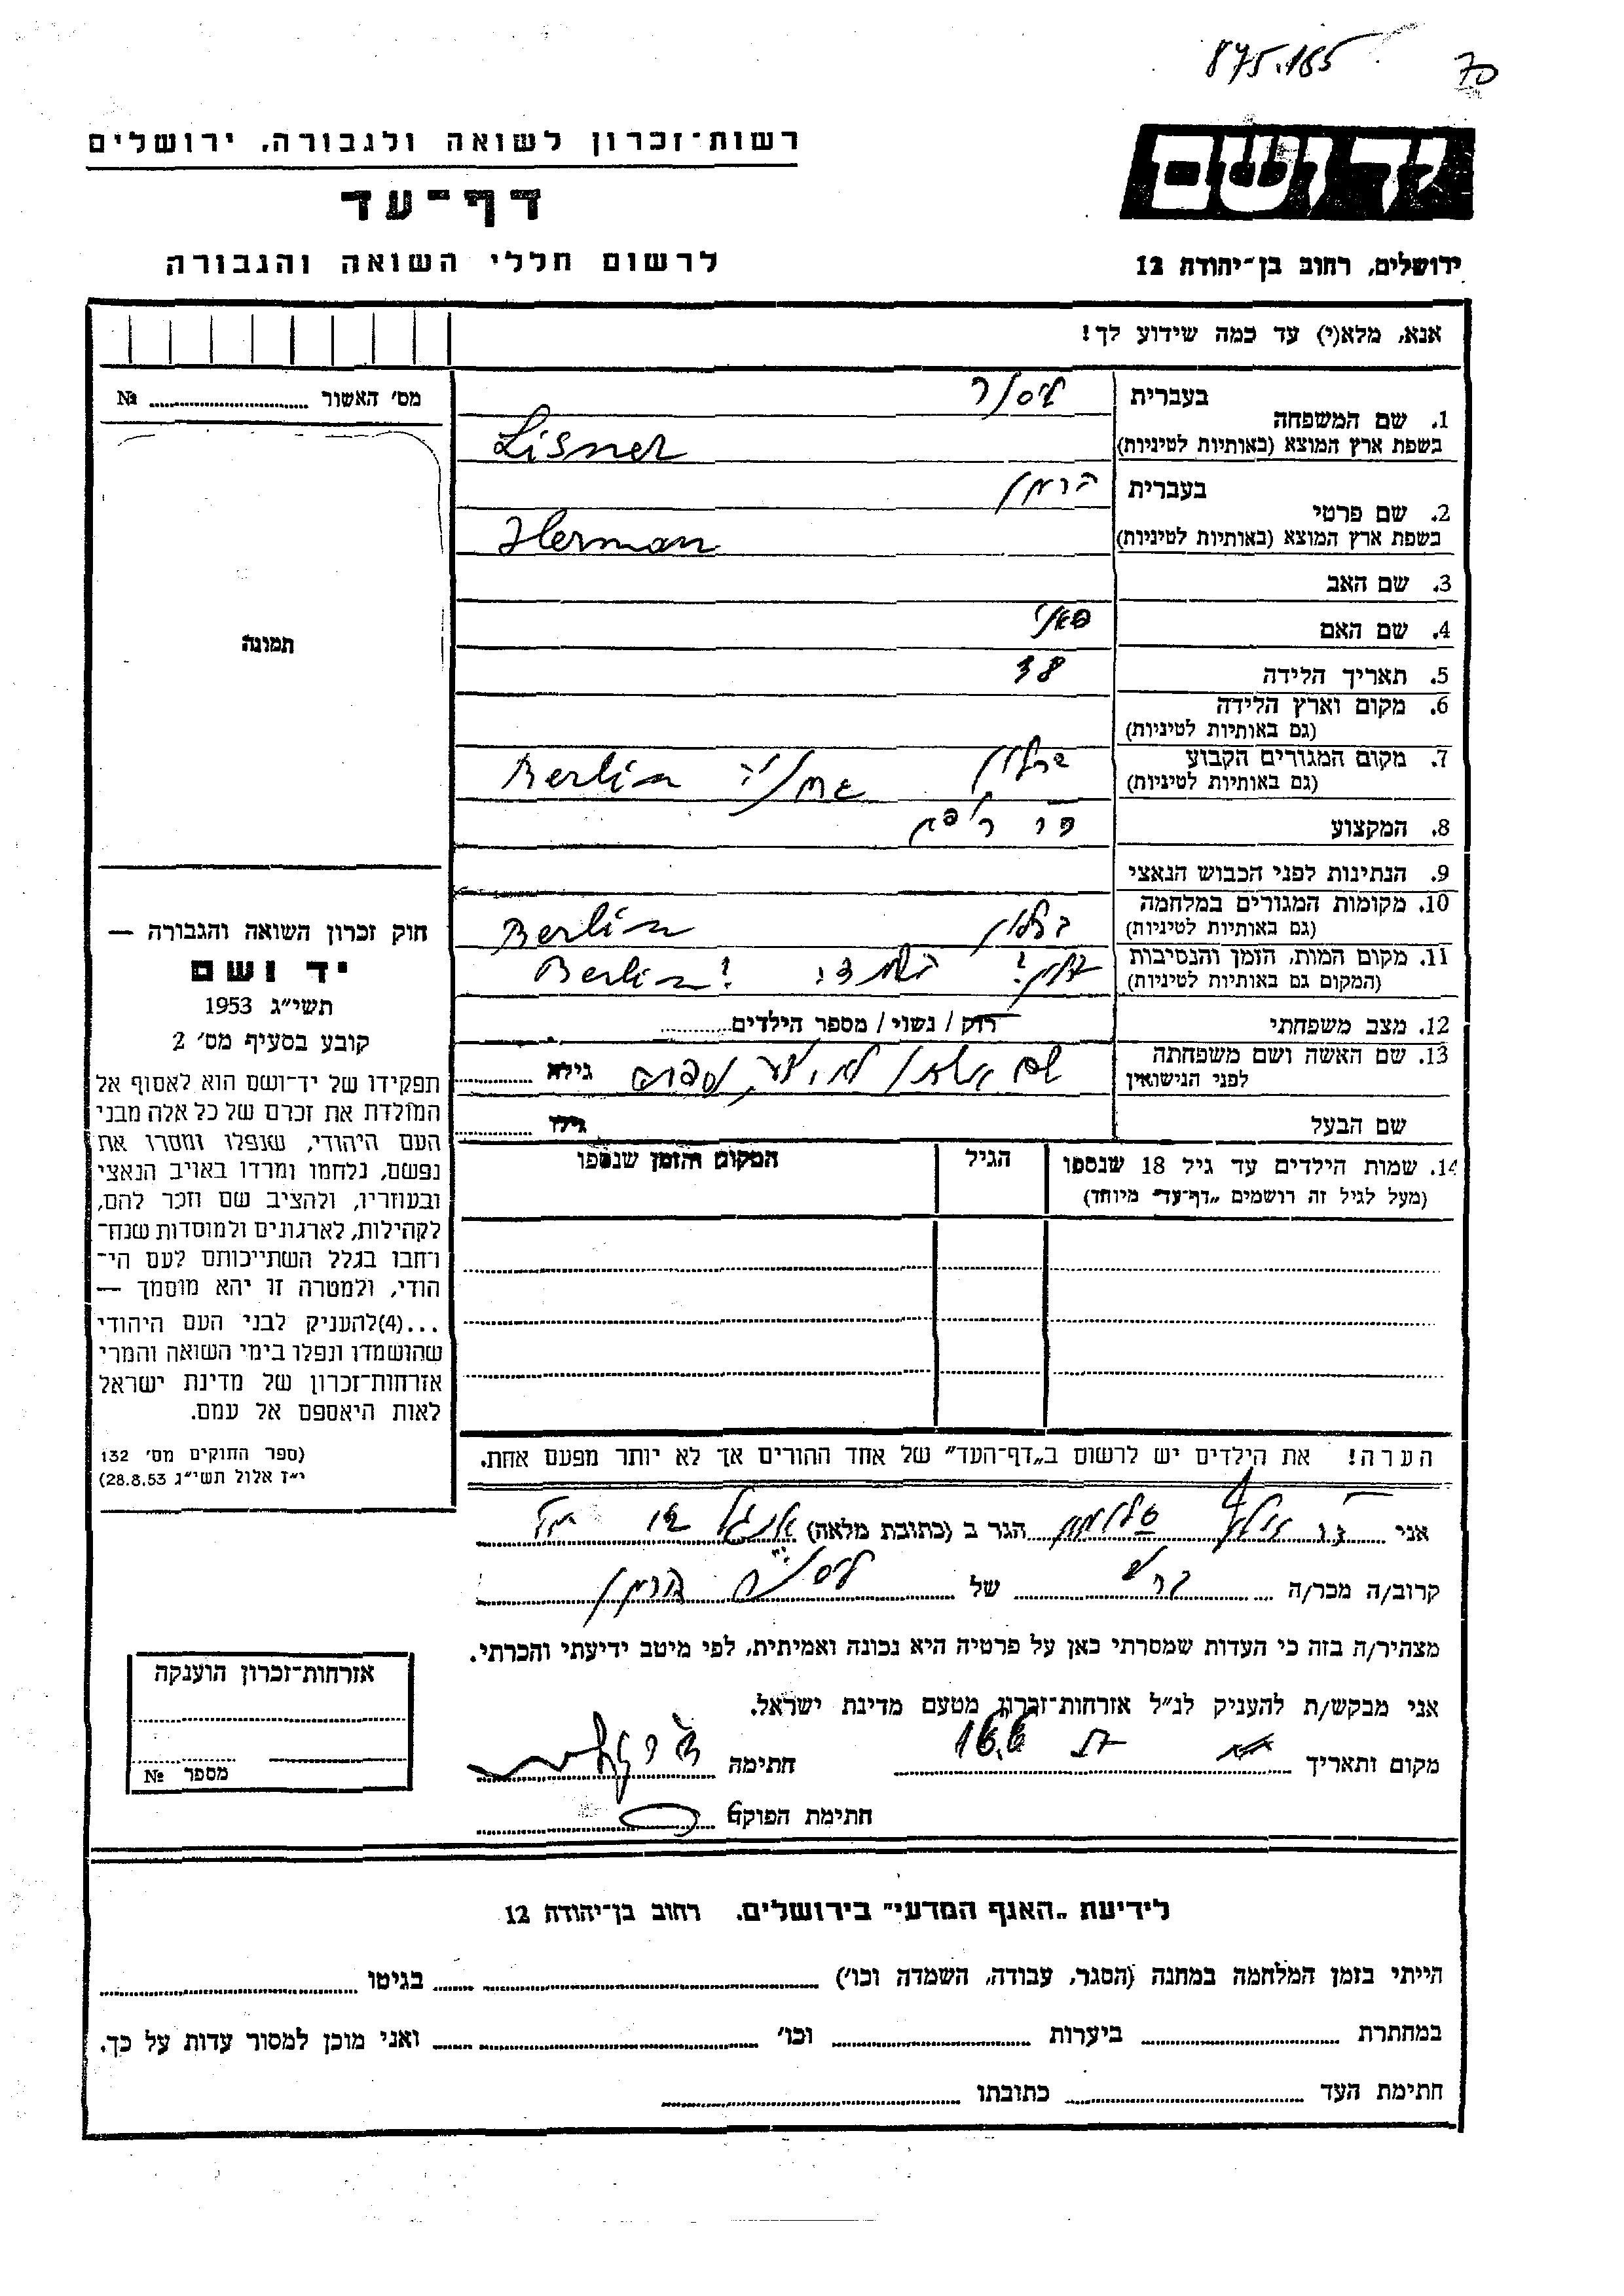 875.165 70
יד ושם
רשות־זכרון לשואה ולגבורה, ירושלים
דף־עד
לרשום חללי השואה והגבורה
ירושלים, רחוב בן־יהודה 12
אנא, מלא(י) עד כמה שידוע לך!
מס' האשור № ........
תמונה
1. שם המשפחה בעברית ליסנר
בשפת ארץ המוצא (באותיות לטיניות) Lisner
2. שם פרטי בעברית הרמן
בשפת ארץ המוצא (באותיות לטיניות) Herman
3. שם האב
4. שם האם פאני
5. תאריך הלידה 38
6. מקום וארץ הלידה
(גם באותיות לטיניות)
7. מקום המגורים הקבוע ברלין גרמניה Berlin
(גם באותיות לטיניות)
8. המקצוע
9. הנתינות לפני הכבוש הנאצי
10. מקומות המגורים במלחמה ברלין Berlin
(גם באותיות לטיניות)
11. מקום המות, הזמן והנסיבות Berlin!
(המקום גם באותיות לטיניות)
12. מצב משפחתי רוק / נשוי / מספר הילדים........
13. שם האשה ושם משפחתה
לפני הנישואין גילה ........
שם הבעל גילו ........
14. שמות הילדים עד גיל 18 שנספו הגיל המקום והזמן שנספו
(מעל לגיל זה רושמים "דף־עד" מיוחד)
חוק זכרון השואה והגבורה —
יד ושם
תשי״ג 1953
קובע בסעיף מס' 2
תפקידו של יד־ושם הוא לאסוף אל
המולדת את זכרם של כל אלה מבני
העם היהודי, שנפלו ומסרו את
נפשם, נלחמו ומרדו באויב הנאצי
ובעוזריו, ולהציב שם וזכר להם,
לקהילות, לארגונים ולמוסדות שנח־
רבו בגלל השתייכותם לעם הי־
הודי, ולמטרה זו יהא מוסמך —
...(4)להעניק לבני העם היהודי
שהושמדו ונפלו בימי השואה והמרי
אזרחות־זכרון של מדינת ישראל
לאות היאספם אל עמם.
(ספר החוקים מס' 132
י״ז אלול תשי״ג 28.8.53)
הערה! את הילדים יש לרשום ב„דף־העד" של אחד ההורים אך לא יותר מפעם אחת.
אני הגר ב (כתובת מלאה)
קרוב/ה מכר/ה של ליסנר הרמן
מצהיר/ה בזה כי העדות שמסרתי כאן על פרטיה היא נכונה ואמיתית, לפי מיטב ידיעתי והכרתי.
אני מבקש/ת להעניק לנ״ל אזרחות־זכרון מטעם מדינת ישראל.
מקום ותאריך 16.6 חתימה
חתימת הפוקד
אזרחות־זכרון הוענקה
מספר №
לידיעת „האגף המדעי" בירושלים, רחוב בן־יהודה 12
הייתי בזמן המלחמה במחנה (הסגר, עבודה, השמדה וכו') ........ בגיטו ........
במחתרת ........ ביערות ........ וכו' ........ ואני מוכן למסור עדות על כך.
חתימת העד ........ כתובתו ........